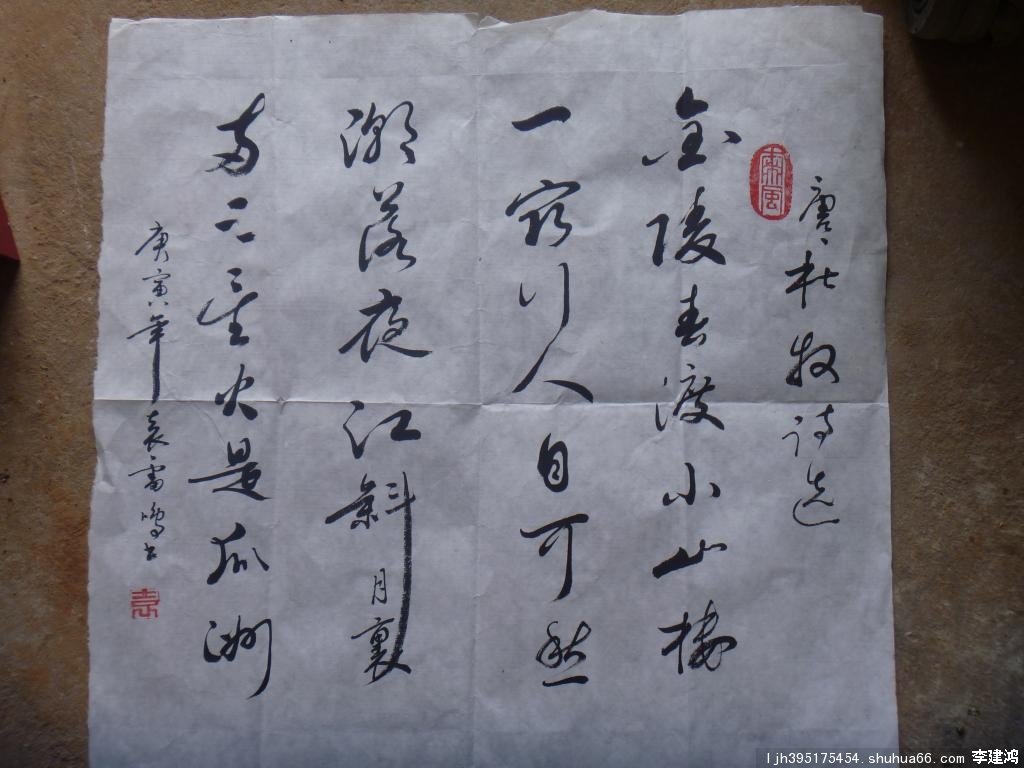 唐、杜牧诗选
金陵春渡小山楼
一宿行人自可愁
潮落夜江斜月裏
两三星火是瓜洲
庚寅年袁雷鸣书
袁
ljh395175454.shuhua66.com 李建鸿